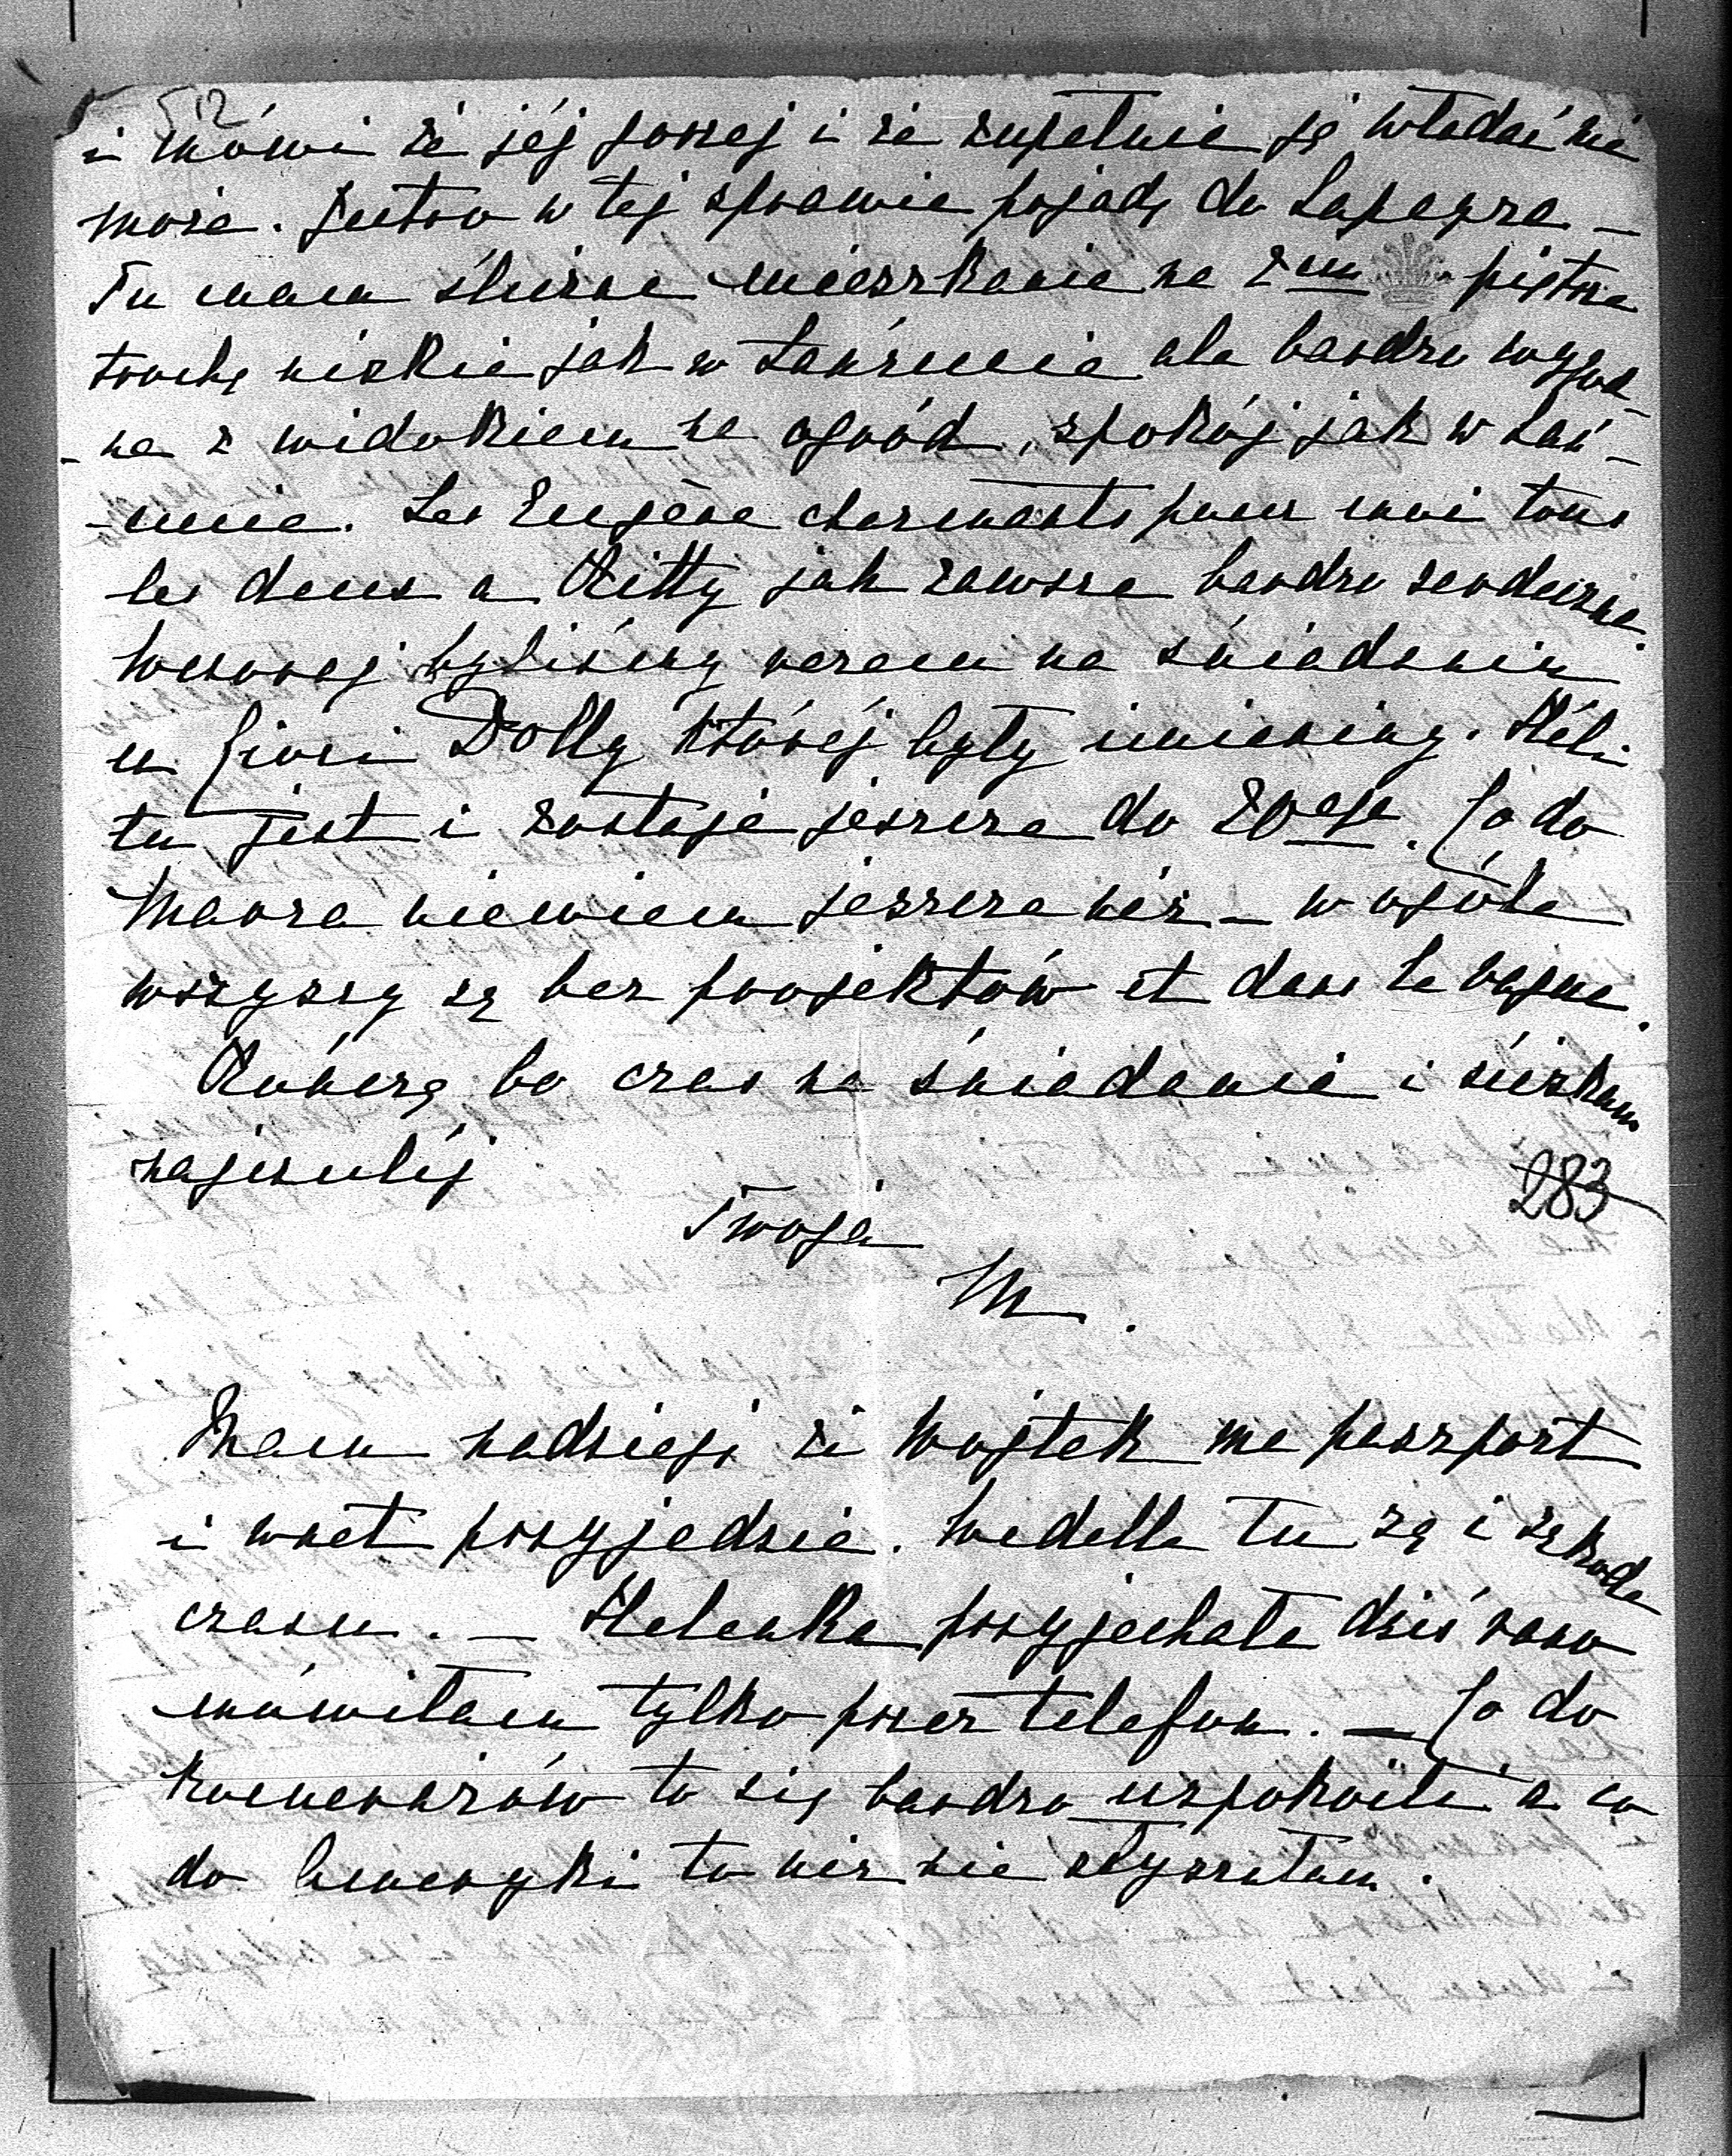 512
i mówi że jéj gorzej i że zupełnie ją władać nie
może. Jutro w tej sprawie pojadę do
Tu mam śliczne mieszkanie na 2em piętrze
trochę nizkie jak w Łańcucie ale bardzo wygod-
-ne z widokiem na ogród, spokój jak w Łań-
-cucie. Les Eugène charmants pour moi tous
les deux a Kitty jak zawsze bardzo serdeczna.
Wczoraj byliśmy razem na śniadaniu
u Cioci Dolly któréj były imieniny. Héli
tu jest i zostaje jeszcze do 20ego. Co do
Maroa niewiem jeszcze nic – w ogóle
wszyscy są bez projektów et dans le vague.
Kończę bo czas na śniadanie i ściskam
najczuléj
283
Twoja
M.
Mam nadzieję że Wojtek ma paszport
i wnet przyjedzie. Wedelle tu są i szkoda
czasu. – Helenka przyjechała dziś rano
mówiłam tylko przez telefon. – Co do
to się bardzo uspokoiła a co
do to nic nie słyszałam.